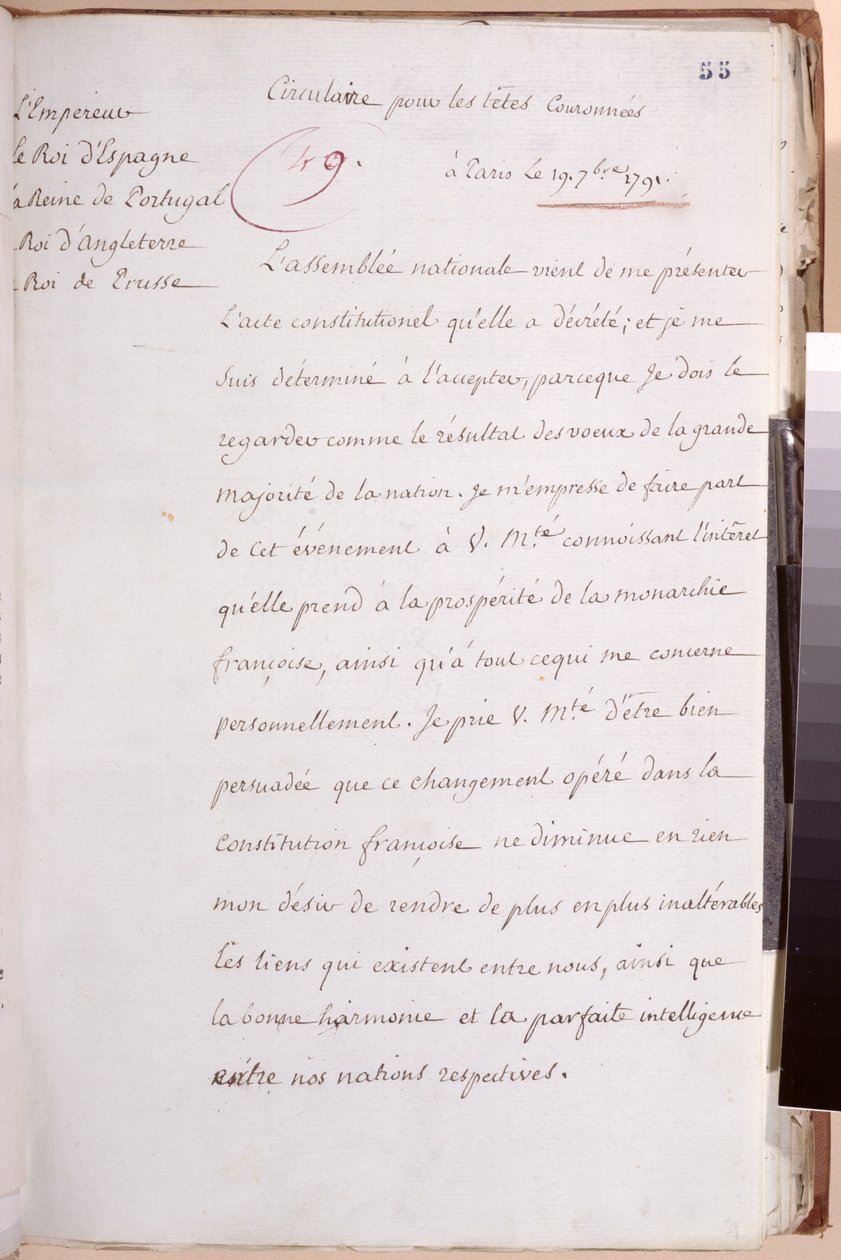 55
Circulaire pour les têtes Couronnées
L'Empereur
le Roi d'Espagne
la Reine de Portugal
Roi d'Angleterre
Roi de Prusse
49.
à Paris Le 19. 7bre 1791.
L'assemblée nationale vient de me présenter
L'acte constitutionel qu'elle a décrété; et je me
suis déterminé à l'accepter, parceque Je dois le
regarder comme le résultat des voeux de la grande
majorité de la nation. Je m'empresse de faire part
de Cet événement à V. Mté connoissant l'intêret
qu'elle prend à la prospérité de la monarchie
françoise, ainsi qu'à tout cequi me concerne
personnellement. Je prie V. Mté d'être bien
persuadée que ce changement opéré dans la
constitution françoise ne diminue en rien
mon désir de rendre de plus en plus inaltérables
les liens qui existent entre nous, ainsi que
la bonne harmonie et la parfaite intelligence
entre nos nations respectives.